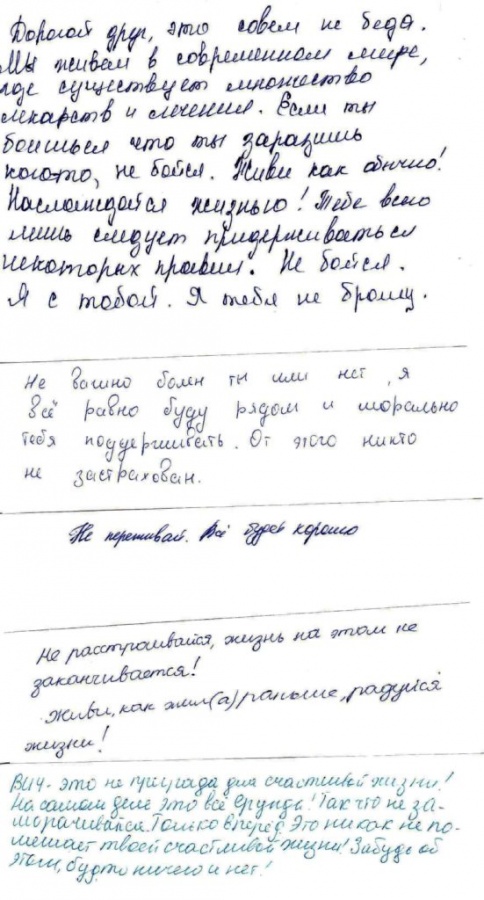 Дорогой друг, это совсем не беда.
Мы живем в современном мире,
где существует множество
лекарств и лечения. Если ты
боишься что ты заразишь
кого-то, не бойся. Живи как обычно!
Наслаждайся жизнью! Тебе всего
лишь следует придерживаться
некоторых правил. Не бойся.
Я с тобой. Я тебя не брошу.
Не важно болен ты или нет, я
всё равно буду рядом и морально
тебя поддерживать. От этого никто
не застрахован.
Не переживай. Всё будет хорошо
Не расстраивайся, жизнь на этом не
заканчивается!
Живи, как жил(а) раньше, радуйся
жизни!
ВИЧ - это не преграда для счастливой жизни!
На самом деле это всё ерунда! Так что не за-
морачивайся. Только вперёд. Это никак не по-
мешает твоей счастливой жизни! Забудь об
этом, будто ничего и нет!